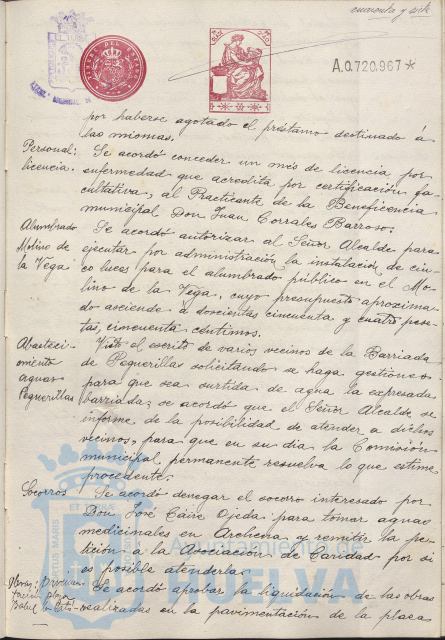 cuarenta y siete
A.0.720.967*
por haberse agotado el préstamo destinado á
las mismas.
Personal:
licencia.
Se acordó conceder un mes de licencia por
enfermedad que acredita por certificación fa-
cultativa, al Practicante de la Beneficencia
municipal Don Juan Corrales Barroso.
Alumbrado
Molino de
la Vega
Se acordó autorizar al Señor Alcalde para
ejecutar por administración la instalación de cin-
co luces para el alumbrado público en el Mo-
lino de la Vega, cuyo presupuesto aproxima-
do asciende a doscientas cincuenta y cuatro pese-
tas, cincuenta céntimos.
Abasteci-
miento
aguas
Peguerillas
Visto el escrito de varios vecinos de la Barriada
de Peguerillas solicitando se haga gestiones
para que sea surtida de agua la expresada
barriada; se acordó que el Señor Alcalde se
informe de la posibilidad de atender a dichos
vecinos, para que en su dia la Comisión
municipal permanente resuelva lo que estime
procedente.
Socorros
Se acordó denegar el socorro interesado por
Don José Ojeda para tomar aguas
medicinales en y remitir la pe-
tición a la Asociacion de Caridad por si
es posible atenderla.
Obras:
plaza
Se acordó aprobar la liquidación de las obras
realizadas en la pavimentación de la plaza
Ayuntamiento de
HUELVA